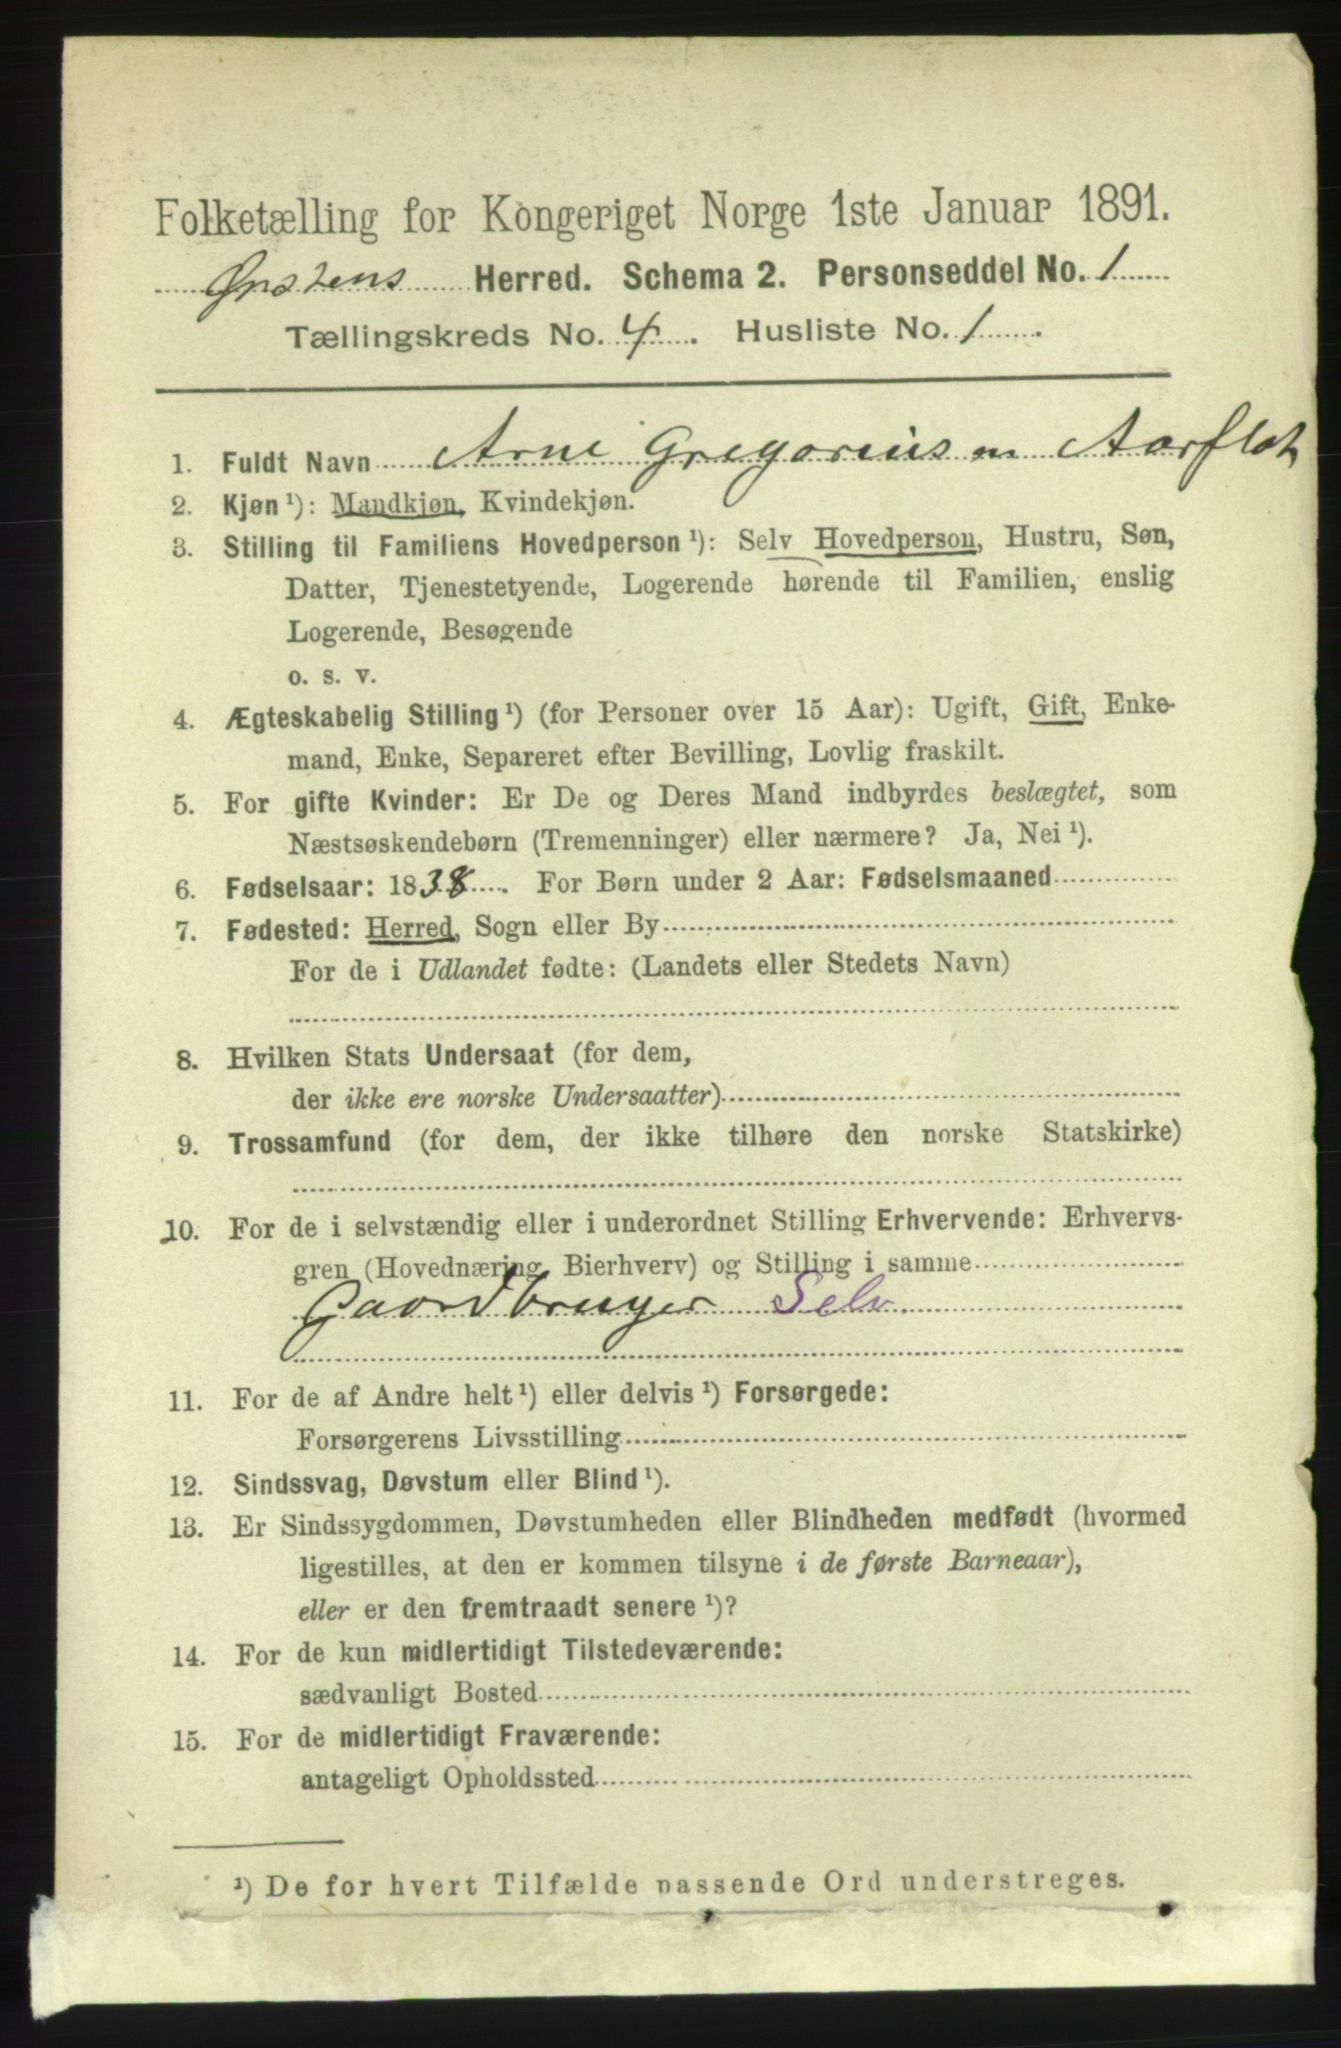 Folketælling for Kongeriget Norge 1ste Januar 1891.
Ørstens Herred. Schema 2. Personseddel No. 1
Tællingskreds No. 4. Husliste No. 1.
1. Fuldt Navn Arne Gregoriusen Aarflot
2. Kjøn ¹): Mandkjøn, Kvindekjøn.
3. Stilling til Familiens Hovedperson ¹): Selv Hovedperson, Hustru, Søn,
Datter, Tjenestetyende, Logerende hørende til Familien, enslig
Logerende, Besøgende
o. s. v.
4. Ægteskabelig Stilling ¹) (for Personer over 15 Aar): Ugift, Gift, Enke-
mand, Enke, Separeret efter Bevilling, Lovlig fraskilt.
5. For gifte Kvinder: Er De og Deres Mand indbyrdes beslægtet, som
Næstsøskendebørn (Tremenninger) eller nærmere? Ja, Nei ¹).
6. Fødselsaar: 1838. For Børn under 2 Aar: Fødselsmaaned
7. Fødested: Herred, Sogn eller By
For de i Udlandet fødte: (Landets eller Stedets Navn)
8. Hvilken Stats Undersaat (for dem,
der ikke ere norske Undersaatter)
9. Trossamfund (for dem, der ikke tilhøre den norske Statskirke)
10. For de i selvstændig eller i underordnet Stilling Erhvervende: Erhvervs-
gren (Hovednæring, Bierhverv) og Stilling i samme
Gaardbruger Selv.
11. For de af Andre helt ¹) eller delvis ¹) Forsørgede:
Forsørgerens Livsstilling
12. Sindssvag, Døvstum eller Blind ¹).
13. Er Sindssygdommen, Døvstumheden eller Blindheden medfødt (hvormed
ligestilles, at den er kommen tilsyne i de første Barneaar),
eller er den fremtraadt senere ¹)?
14. For de kun midlertidigt Tilstedeværende:
sædvanligt Bosted
15. For de midlertidigt Fraværende:
antageligt Opholdssted
¹) De for hvert Tilfælde passende Ord understreges.